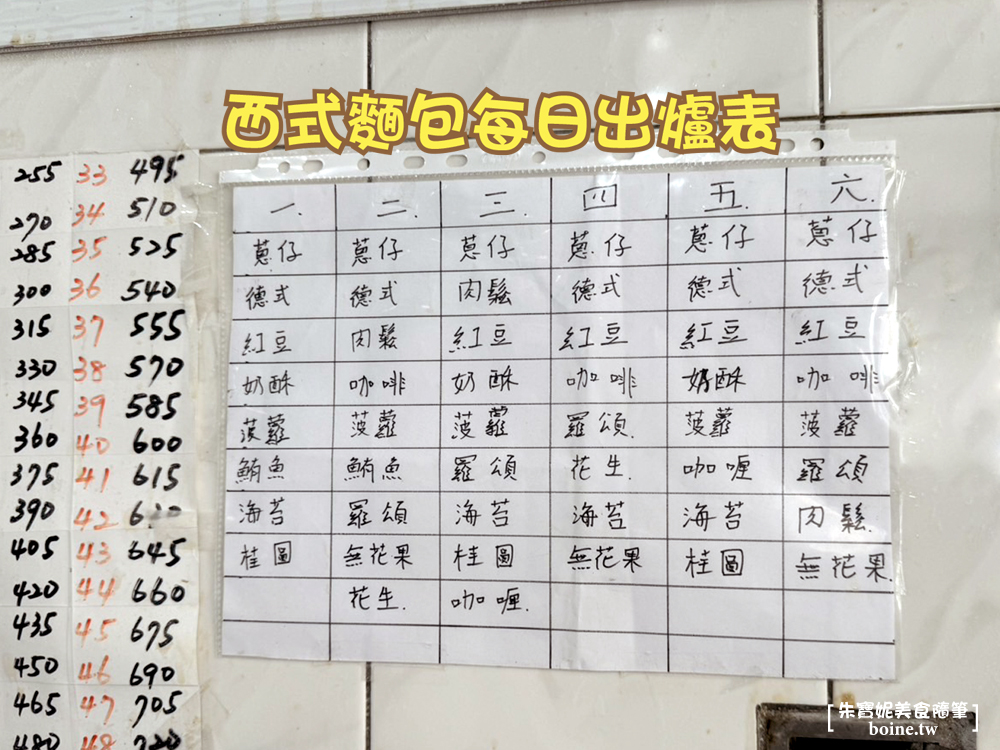 西式麵包每日出爐表
一. 二. 三. 四 五. 六.
蔥仔 蔥仔 蔥仔 蔥仔 蔥仔 蔥仔
德式 德式 肉鬆 德式 德式 德式
紅豆 肉鬆 紅豆 紅豆 紅豆 紅豆
奶酥 咖啡 奶酥 咖啡 奶酥 咖啡
菠蘿 菠蘿 菠蘿 羅頌. 菠蘿 菠蘿
鮪魚 鮪魚 羅頌 花生. 咖喱 羅頌
海苔 羅頌 海苔 海苔 海苔 肉鬆.
桂圓 無花果 桂圓 無花果 桂圓 無花果.
花生. 咖喱.
255 33 495
270 34 510
285 35 525
300 36 540
315 37 555
330 38 570
345 39 585
360 40 600
375 41 615
390 42
405 43 645
420 44 660
435 45 675
450 46 690
465 47 705
480 48 720
[朱寶妮美食隨筆]
boine.tw